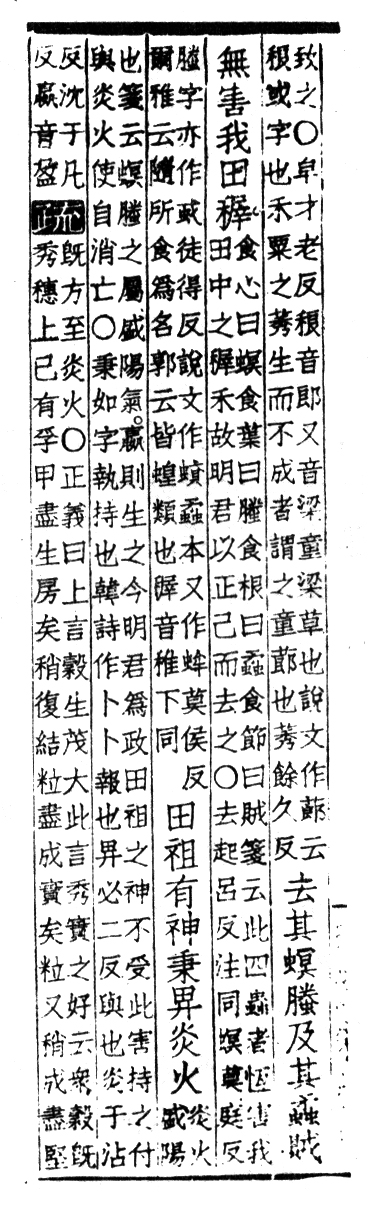 致之〇皁才老反稂音郎又音梁童梁草也說文作蓈云
稂或字也禾粟之莠生而不成者謂之童蓈也莠餘久反
去其螟螣及其蟊賊
無害我田穉
食心曰螟食葉曰螣食根曰蟊食節曰賊箋云此四蟲者恆害我
田中之穉禾故明君以正己而去之〇去起呂反注同螟莫庭反
螣字亦作𧊇徒得反說文作蟘蟊本又作蛑莫侯反
爾雅云隨所食爲名郭云皆蝗類也穉音稚下同
田祖有神秉畀炎火
炎火
盛陽
也箋云螟螣之屬盛陽氣嬴則生之今明君爲政田祖之神不受此害持之付
與炎火使自消亡〇秉如字執持也韓詩作卜卜報也畀必二反與也炎于沾
反沈于凡
反嬴音盈
疏
既方至炎火〇正義曰上言穀生茂大此言秀實之好云衆穀既
秀穗上已有孚甲盡生房矣稍復結粒盡成實矣粒又稍成盡堅